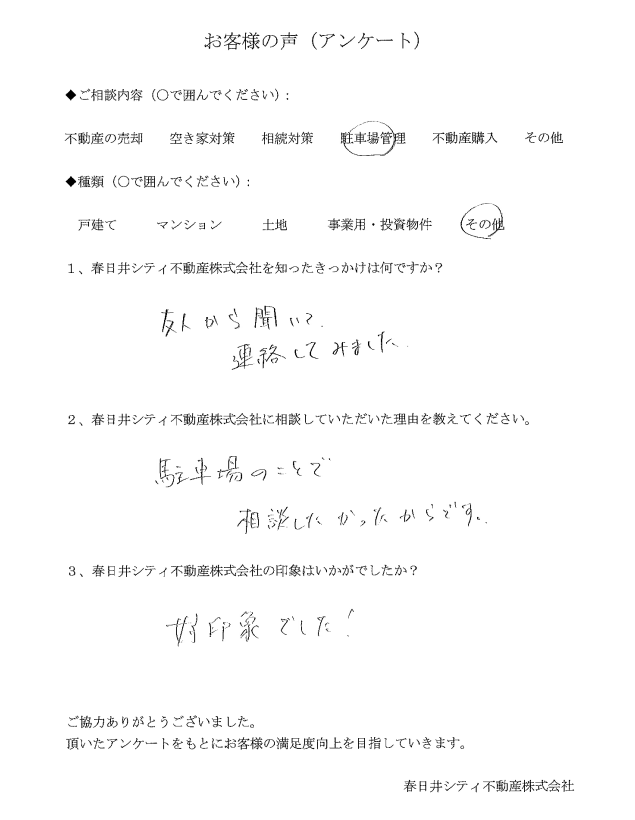 お客様の声（アンケート）
◆ご相談内容（〇で囲んでください）:
不動産の売却 空き家対策 相続対策 駐車場管理 不動産購入 その他
◆種類（〇で囲んでください）:
戸建て マンション 土地 事業用・投資物件 その他
１、春日井シティ不動産株式会社を知ったきっかけは何ですか？
友人から聞いて.
連絡してみました.
２、春日井シティ不動産株式会社に相談していただいた理由を教えてください。
駐車場のことで
相談したかったからです。
３、春日井シティ不動産株式会社の印象はいかがでしたか？
好印象でした！
ご協力ありがとうございました。
頂いたアンケートをもとにお客様の満足度向上を目指していきます。
春日井シティ不動産株式会社